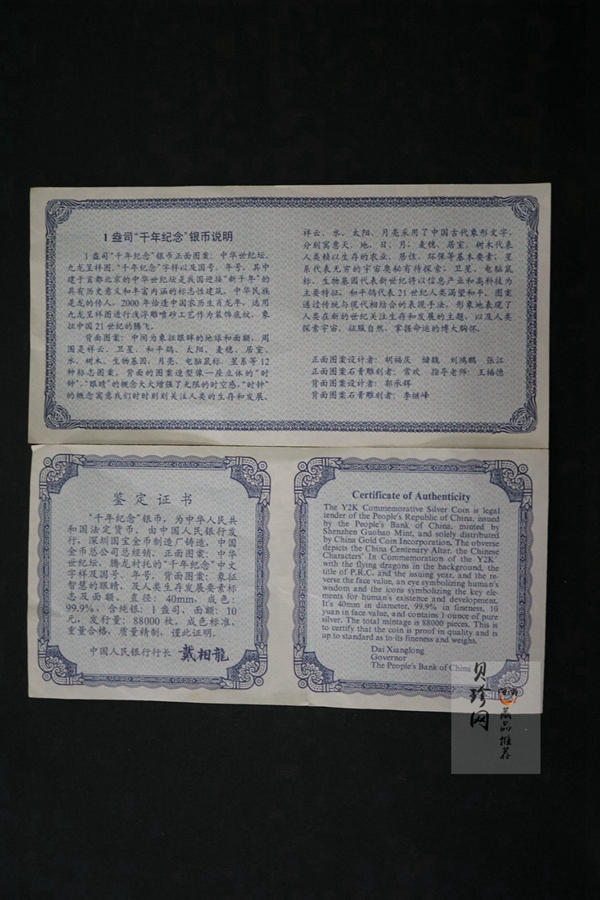 1盎司“千年纪念”银币说明
1盎司“千年纪念”银币正面图案:中华世纪坛、
九龙呈祥图、“千年纪念”字样以及国号、年号。其中
建于首都北京的中华世纪坛是我国迎接“新千年”的
具有历史意义和丰富内涵的标志性建筑。中华民族
是龙的传人,2000年恰逢中国农历生肖龙年,选用
九龙呈祥图进行浅浮雕喷砂工艺作为装饰底纹,象
征中国21世纪的腾飞。
背面图案:中间为象征眼眸的地球和面额,周
围是祥云、卫星、和平鸽、太阳、麦穗、居室、
水、树木、生物基因、月亮、电脑鼠标、星系等12
种标志图案。背面的图案造型像一座立体的“时
钟”。“眼睛”的概念大大增强了无限的时空感,“时钟”
的概念寓意我们时时刻刻关注人类的生存和发展。
祥云、水、太阳、月亮采用了中国古代象形文字,
分别寓意天、地、日、月;麦穗、居室、树木代表
人类赖以生存的农业、居住、环保等基本要素;星
系代表无穷的宇宙奥秘有待探索;卫星、电脑鼠
标、生物基因代表新世纪将以信息产业和高科技为
主要特征;和平鸽代表21世纪人类渴望和平。图案
通过传统与现代相结合的表现手法,形象地表现了
人类在新的世纪关注生存和发展的主题,以及人类
探索宇宙、征服自然、掌握命运的博大胸怀。
正面图案设计者:胡福庆 储魏 刘鸿鹏 张江
正面图案石膏雕刻者:常欢 指导老师:王福德
背面图案设计者:郭承辉
背面图案石膏雕刻者:李继峰
鉴定证书
“千年纪念”银币,为中华人民共
和国法定货币。由中国人民银行发
行,深圳国宝金币制造厂铸造,中国
金币总公司总经销。正面图案:中华
世纪坛、腾龙衬托的“千年纪念”中文
字样及国号、年号。背面图案:象征
智慧的眼睛,及人类生存发展要素标
志及面额。直径:40mm,成色:
99.9%,含纯银:1盎司,面额:10
元,发行量:88000枚,成色标准,
重量合格,质量精制,谨此证明。
中国人民银行行长 戴相龍
Certificate of Authenticity
The Y2K Commemorative Silver Coin is legal
tender of the People's Republic of China, issued
by the People's Bank of China, minted by
Shenzhen Guobao Mint, and solely distributed
by China Gold Coin Incorporation. The obverse
depicts the China Centenary Altar, the Chinese
Characters' In Commemoration of the Y2K'
with the flying dragons in the background, the
title of P.R.C. and the issuing year, and the re-
verse the face value, an eye symbolizing human's
wisdom and the icons symbolizing the key ele-
ments for human's existence and development.
It's 40mm in diameter, 99.9% in fineness, 10
yuan in face value, and contains 1 ounce of pure
silver. The total mintage is 88000 pieces. This is
to certify that the coin is proof in quality and is
up to standard as to its fineness and weight.
Dai Xianglong
Governor
The People's Bank of China
贝珍网
藏品推荐